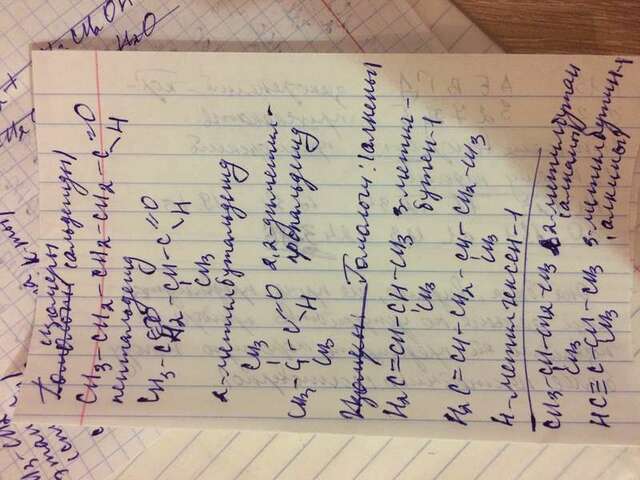 изомеры
Гомологи (альдегиды)
CH3-CH2-CH2-CH2-C=O
H
пентальдегид
CH3-CH2-CH-C=O
H
CH3
2-метилбутальдегид
CH3
CH3-C-C=O
H
CH3
2,2-диметил-
пропальдегид
Изомеры: Гомологи: (алкены)
H2C=CH-CH-CH3
CH3
3-метил-
бутен-1
H2C=CH-CH2-CH-CH2-CH3
CH3
4-метилгексен-1
CH3-CH-CH2-CH3 2-метилбутан
CH3 (алканы)
HC≡C-CH-CH3 3-метилбутин-1
CH3 (алкины)